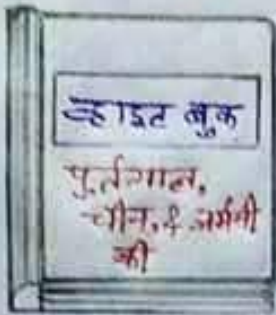 व्हाइट बुक
पुर्तगाल,
चीन, & जर्मनी
की